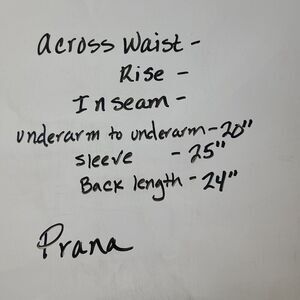 Across Waist -
Rise -
Inseam -
underarm to underarm - 20"
sleeve - 25"
Back length - 24"
Prana